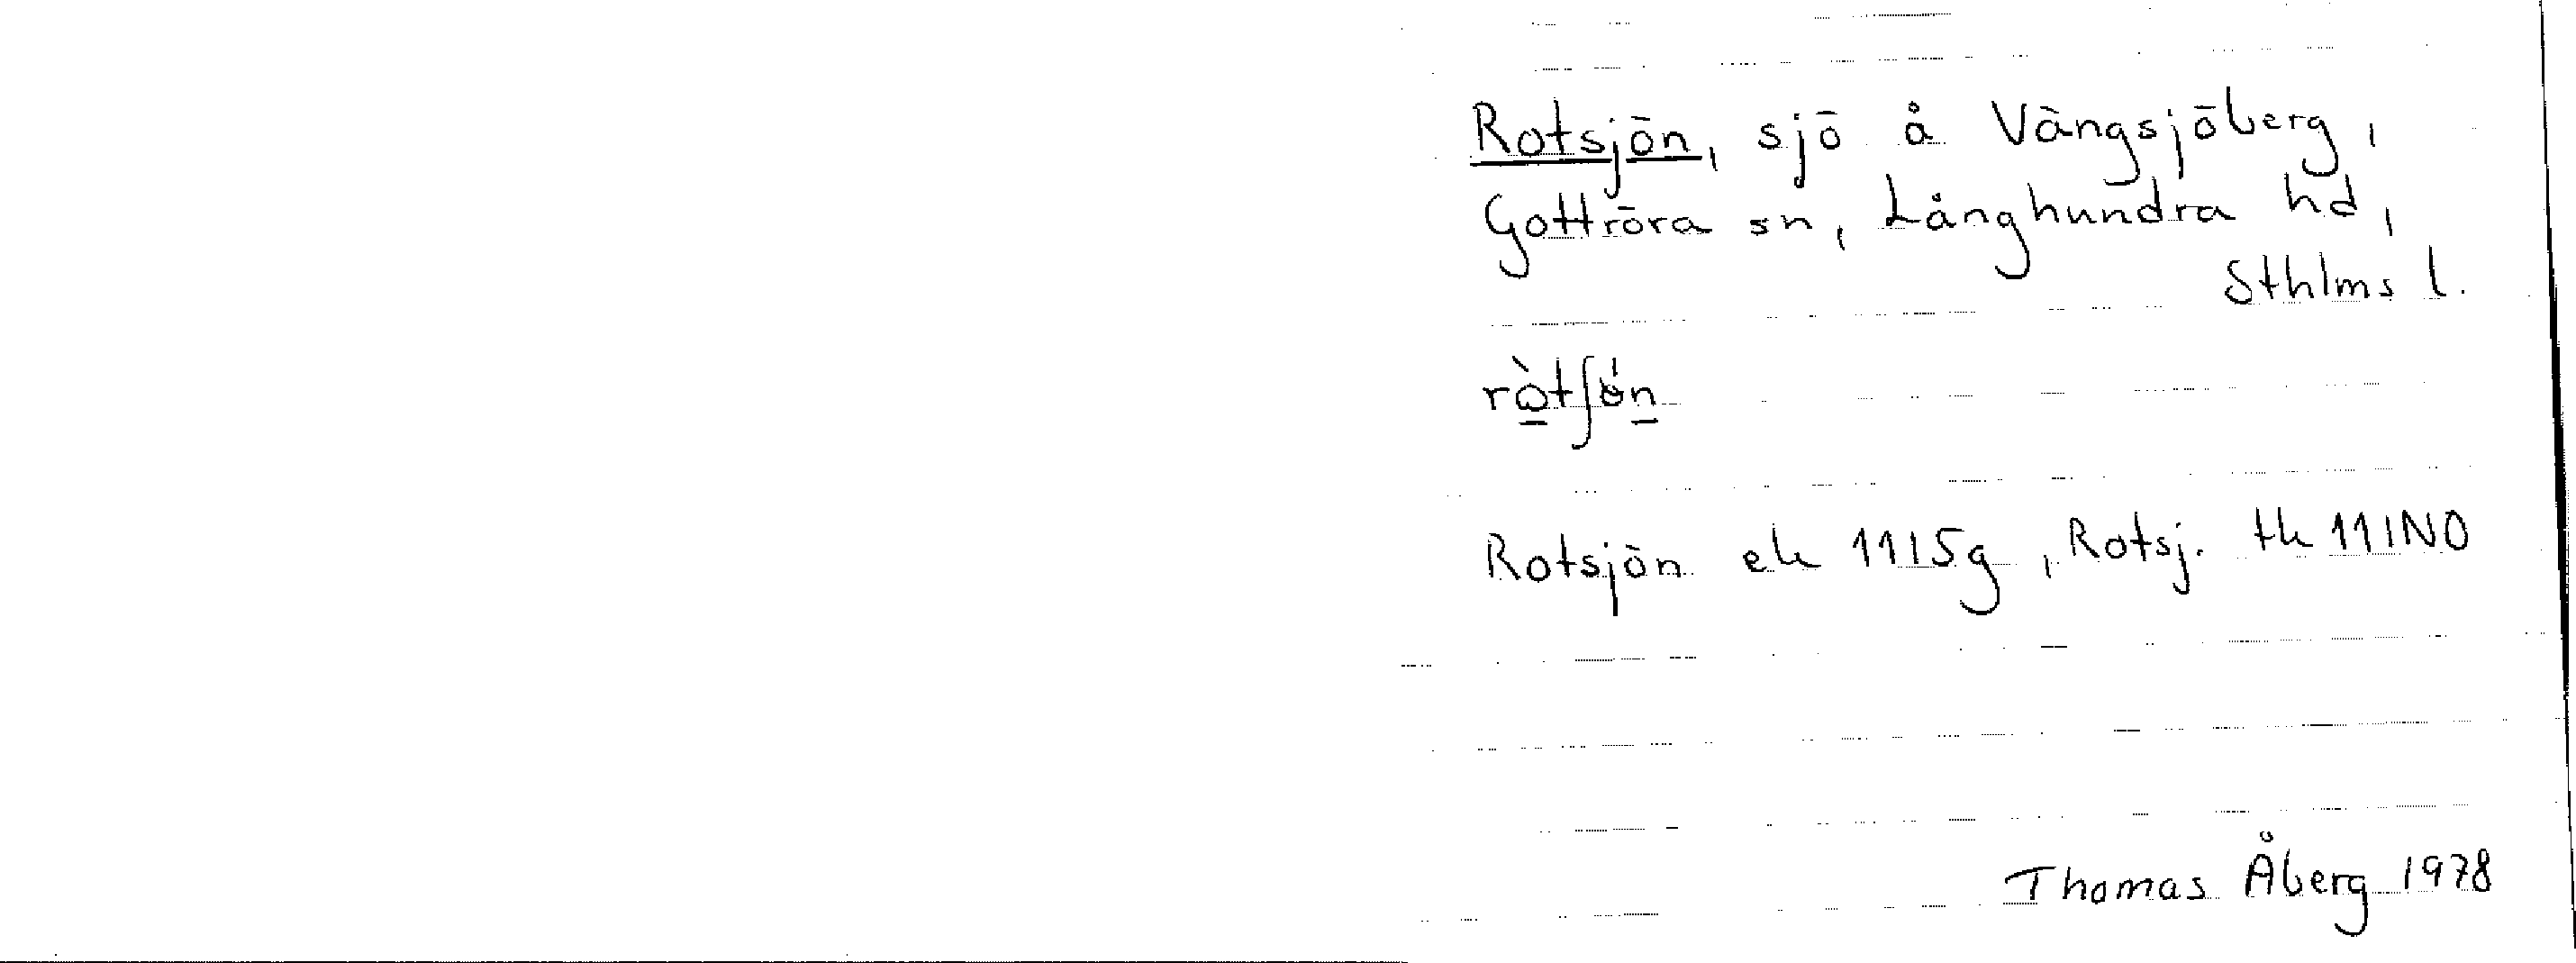 Rotsjön, sjö å Vängsjöberg,
Gottröra sn, Långhundra hd,
Sthlms l.
Rotsjön ek 11I5g, Rotsj. tk 11INO
Thomas Åberg 1978